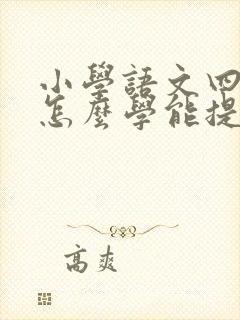 小學語文四
怎麼學能提
高爽